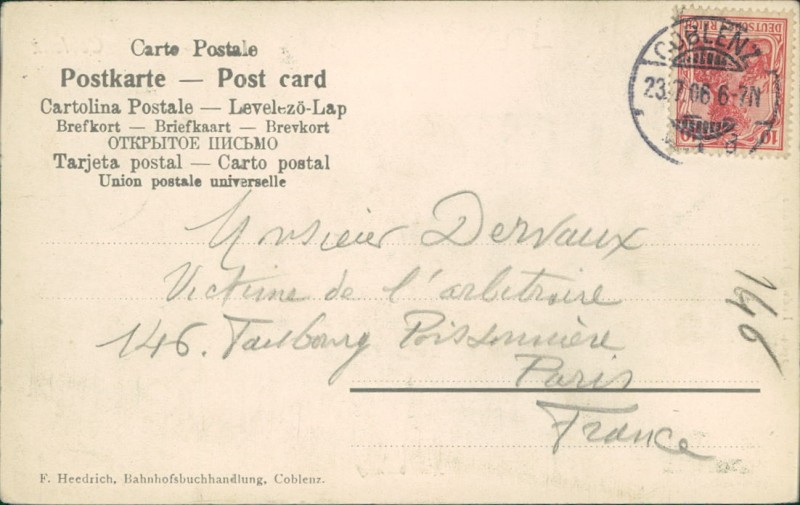 Carte Postale
Postkarte — Post card
Cartolina Postale — Levelező-Lap
Brefkort — Briefkaart — Brevkort
ОТКРЫТОЕ ПИСЬМО
Tarjeta postal — Carto postal
Union postale universelle
DEUTSCHES REICH
10 10
COBLENZ
23.7.06 6-7N
Monsieur Dervaux
Victime de l'arbitraire
146. Faubourg Poissonnière
Paris
France
146
F. Heedrich, Bahnhofsbuchhandlung, Coblenz.